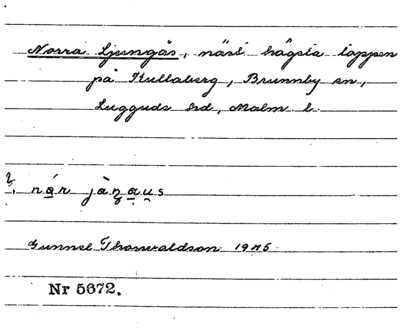 Norra Ljungås, näst högsta toppen
på Kullaberg, Brunnby sn,
Luggude hd, Malm. l.
2, nǫr jàŋaus
Gunnel Thorwaldson 1945.
Nr 5672.